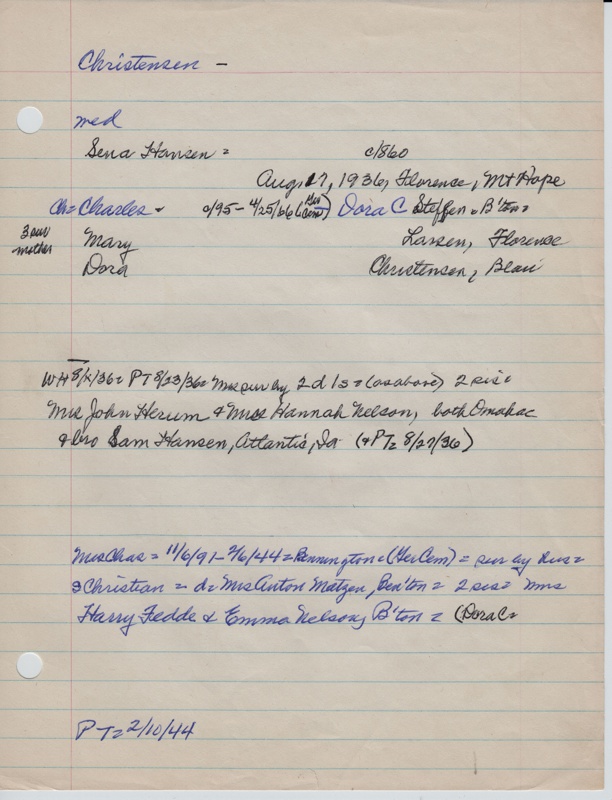 Christensen –
med
Sena Hansen = c/860
Aug 17, 1936, Florence, Mt Hope
Ch= Charles = c/95 – 4/25/66 (Ger Cem) Dora C Steffen = B'ton=
3 sur mother
Mary Larsen, Florence
Dora Christensen, Blair
WH 8/ /36= PT 8/23/36= Mrs sur by 2 d 1 s = (as above) 2 sis=
Mrs John Herum & Mrs Hannah Nelson, both Omaha
& bro Sam Hansen, Atlantic, Ia (& PT= 8/27/36)
Mrs Chas = 11/6/91 – 2/6/44 = Bennington = (Ger Cem) = sur by hus=
s Christian = d= Mrs Anton Matzen, Ben'ton = 2 sis= Mrs
Harry Fedde & Emma Nelson, B'ton = (Dora C=
PT= 2/10/44